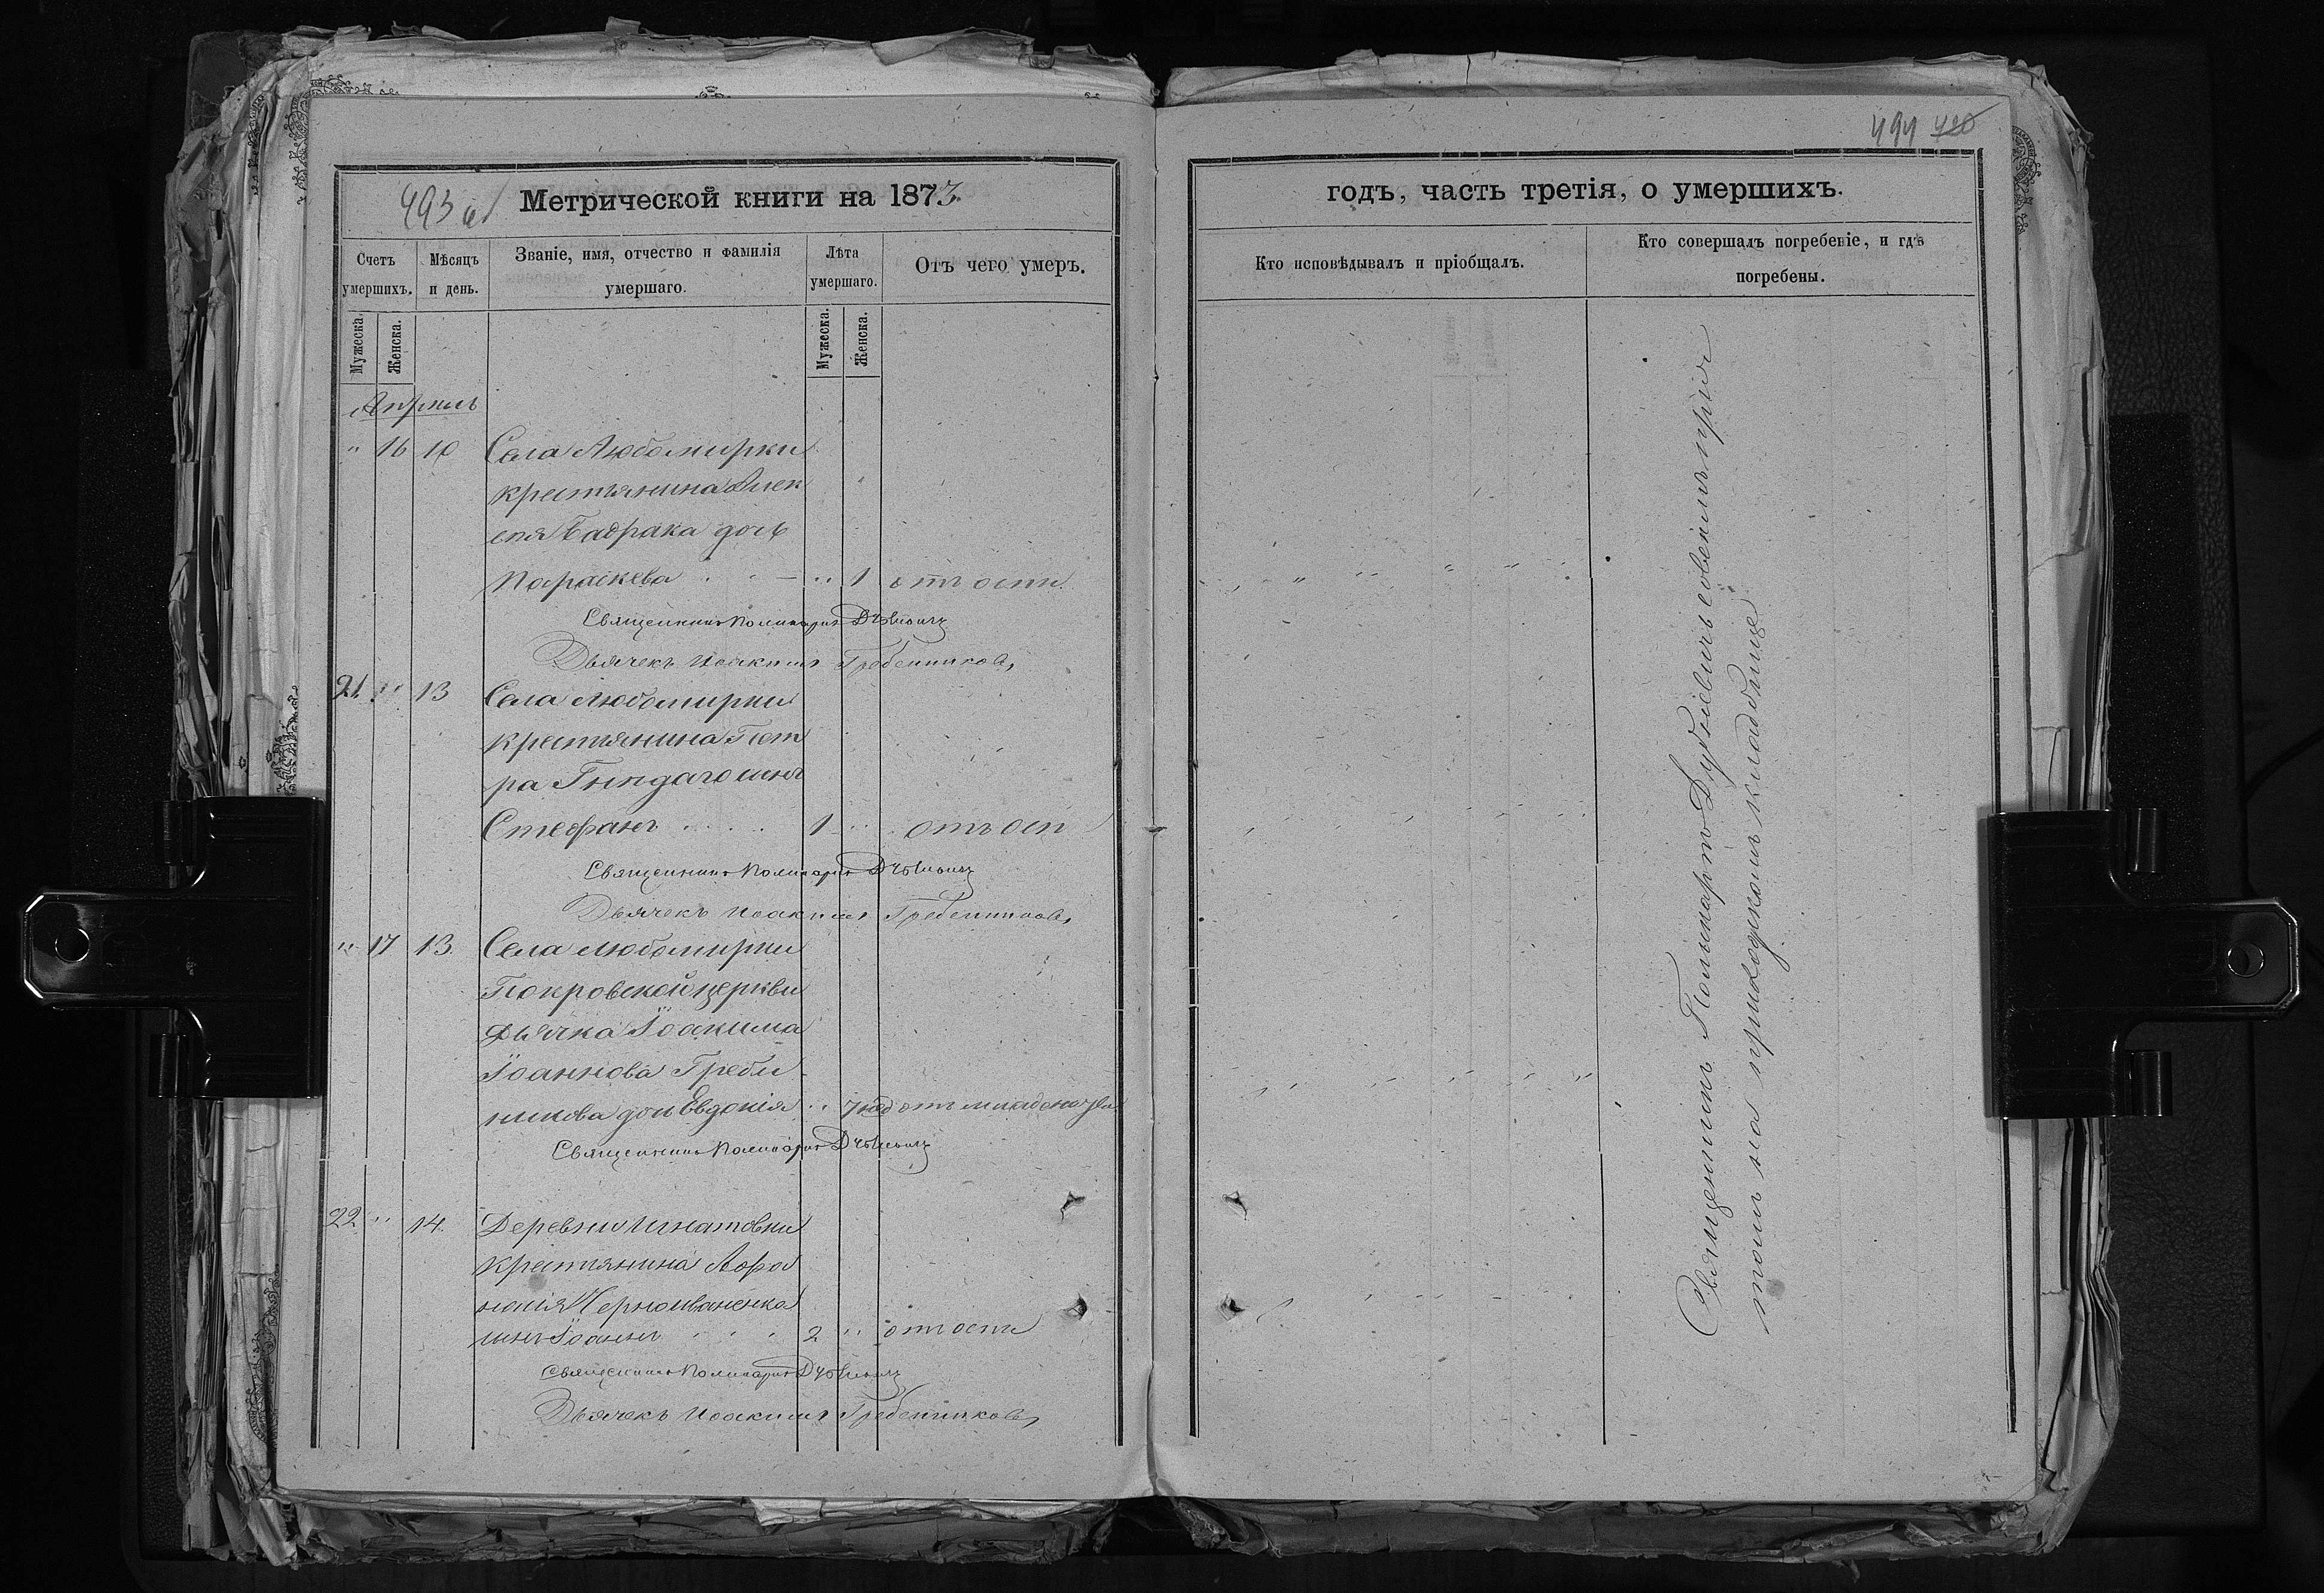 493 об
Метрической книги на 1873
Счетъ умершихъ.
Мѣсяцъ и день.
Званіе, имя, отчество и фамилія умершаго.
Лѣта умершаго.
Отъ чего умеръ.
Мужеска.
Женска.
Мужеска.
Женска.
Апрѣль
" 16 10 Села Любомирки
крестьянина Алек
сѣя Бадрака дочь
Параскева " 1 отъ оспы
Священникъ Поликарпъ Дубневичъ
Дьячекъ Иоакимъ Гребенниковъ
21 " 13 Села Любомирки
крестьянина Пет
ра сынъ
Стефанъ 1 " отъ осп
Священникъ Поликарпъ Дубневичъ
Дьячекъ Иоакимъ Гребенниковъ
" 17 13. Села Любомирки
Покровской церкви
дьячка Іоакима
Іоаннова Гребе
никова дочь Евдокія " 7 нед отъ
Священникъ Поликарпъ Дубневичъ
22 " 14. Деревни Игнатовки
крестьянина Афа
насія Черноиваненка
сынъ Іоаннъ 2 " отъ оспы
Священникъ Поликарпъ Дубневичъ
Дьячекъ Иоакимъ Гребенниковъ
494 420
годъ, часть третія, о умершихъ.
Кто исповѣдывалъ и пріобщалъ.
Кто совершалъ погребеніе, и гдѣ погребены.
Священникъ Поликарпъ Дубневичъ совсемъ при
томъ на приходскомъ кладбище